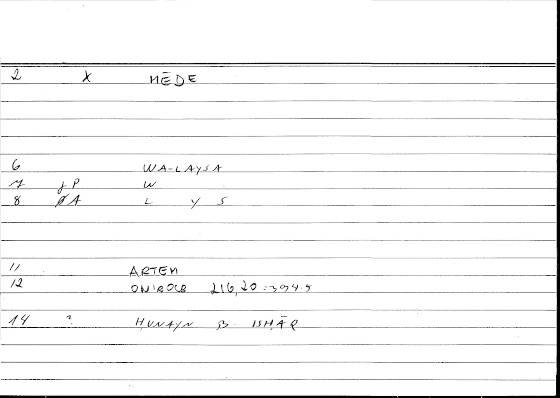 2 X MĒDE
6 WA-LAYSA
7 gP W
8 A L Y S
11 ARTEM
12 ONIROCR 216,20 :394.5
14 ? HUNAYN B. ISHĀQ